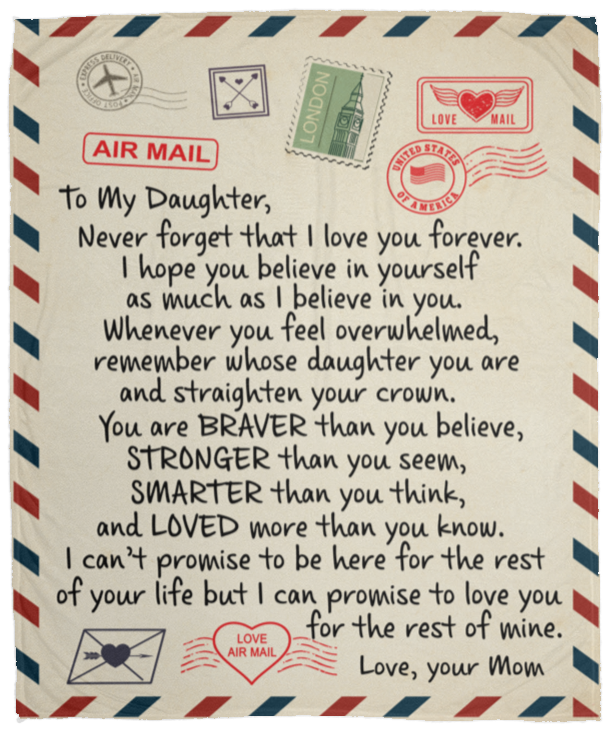 EXPRESS DELIVERY • AIR MAIL • POST OFFICE
LONDON
LOVE MAIL
AIR MAIL
UNITED STATES
OF AMERICA
To My Daughter,
Never forget that I love you forever.
I hope you believe in yourself
as much as I believe in you.
Whenever you feel overwhelmed,
remember whose daughter you are
and straighten your crown.
You are BRAVER than you believe,
STRONGER than you seem,
SMARTER than you think,
and LOVED more than you know.
I can't promise to be here for the rest
of your life but I can promise to love you
for the rest of mine.
LOVE
AIR MAIL
Love, your Mom